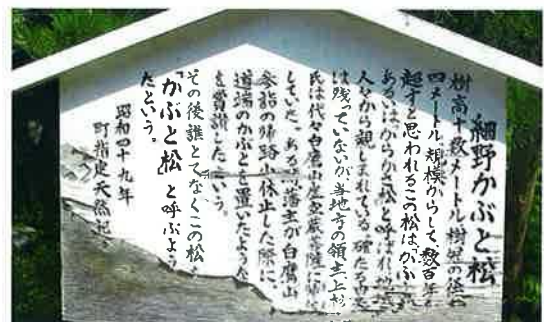 細野かぶと松
樹高十数メートル、樹冠の径
四メートル、規模からして、数百年を
超すと思われるこの松は、「かぶ
あるいは「からかご松」と呼ばれ
人々から親しまれている。確たる
は残っていないが、当地方の領主上杉
氏は代々白鷹山虚空蔵菩薩に
していた。ある時藩主が白鷹山
参詣の帰路小休止した際に、
道端のかぶとを置いたような
を賞讃したという。
その後誰とてなくこの松を
「かぶと松」と呼ぶよう
たという。
昭和四十九年
町指定天然記